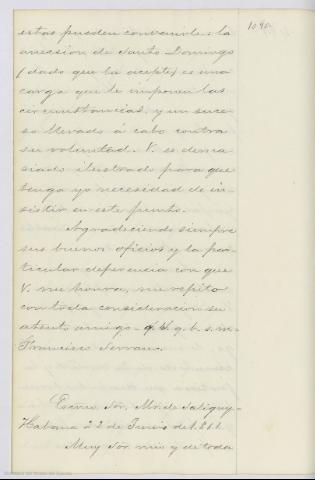 1090
estas pueden convenirle: la
anecsion de Santo Domingo
(dado que la acepte) es una
carga que le imponen las
circunstancias, y un suce-
so llevado á cabo contra
su voluntad. V. es dema-
siado ilustrado para que
tenga yo necesidad de in-
sistir en este punto.
Agradeciendo siempre
sus buenos oficios y la par-
ticular deferencia con que
V. me honra, me repito
con toda consideracion su
atento amigo- q. b. s. m-
Francisco Serrano.
Escmo Sor. Mr. de Saligny-
Habana 22 de Junio de 1.861.
Muy Sor. mio y de toda